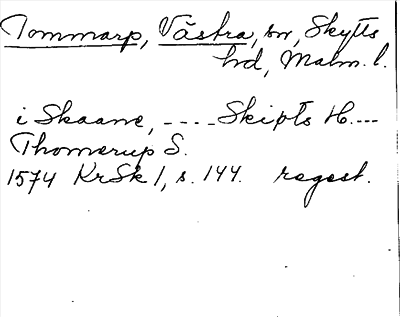 Tommarp, Västra, sn, Skytts
hd, Malm. l.
i Skaane, ---- Skipts H. ---
Thomerup S.
1574 KrSk 1, s. 144. regest.